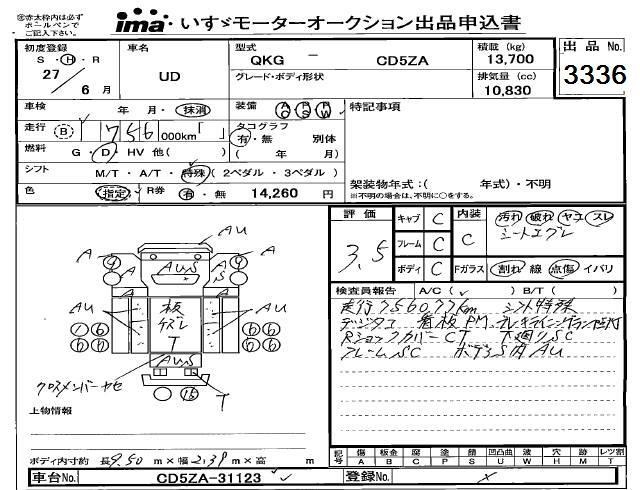 ㊟赤太枠内は必ず
ボールペンで
ご記入下さい。
ima いすゞモーターオークション出品申込書
初度登録
S・H・R
27 / 6 月
車名
UD
型式
QKG － CD5ZA
グレード・ボディ形状
積載 (kg)
13,700
排気量 (cc)
10,830
出品 No.
3336
車検 年・月・抹消
装備 A/C P/S P/W
特記事項
走行 B 756 000km
タコグラフ
有・無 別体
( 年 月)
燃料 G・D・HV 他( )
シフト M/T・A/T・特殊(2ペダル・3ペダル)
架装物年式:( 年式)・不明
※不明の場合は、不明に○をする。
色 指定 R券 有・無 14,260 円
評価
3.5
キャブ C
フレーム C
ボディ C
内装 C
汚れ 破れ ヤコ スレ
シートエグレ
Fガラス 割れ 線 点傷 イバリ
検査員報告 A/C( ) B/T( )
走行756077km シフト特殊
デジタコ 看板PM
CT 下廻りSC
フレームSC ボデーS内AU
AU
A A
4 4
AU.S S
A A
AU AU
板
ケズレ
T
16 66
66 66
AU.S
クロスメンバーヤセ
15 T
上物情報
ボディ内寸約 長9.50 m×幅2.39 m×高 m
記号 傷A 板金B 腐C 塗P 錆S 凹凸曲U 波W 穴H 跡M レツ割T
車台No. CD5ZA-31123
登録No.